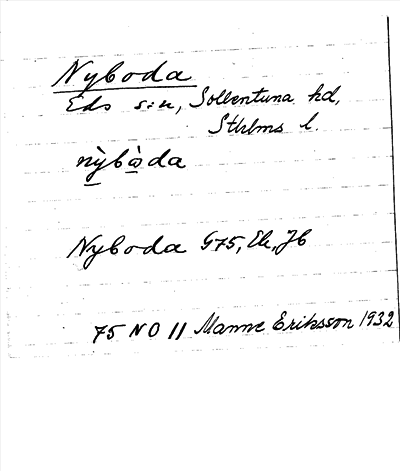 Nyboda
Eds s:n, Sollentuna hd,
Sthlms l.
nỳbò̱da
Nyboda G75, Ek, Jb
75 NO 11 Manne Eriksson 1932